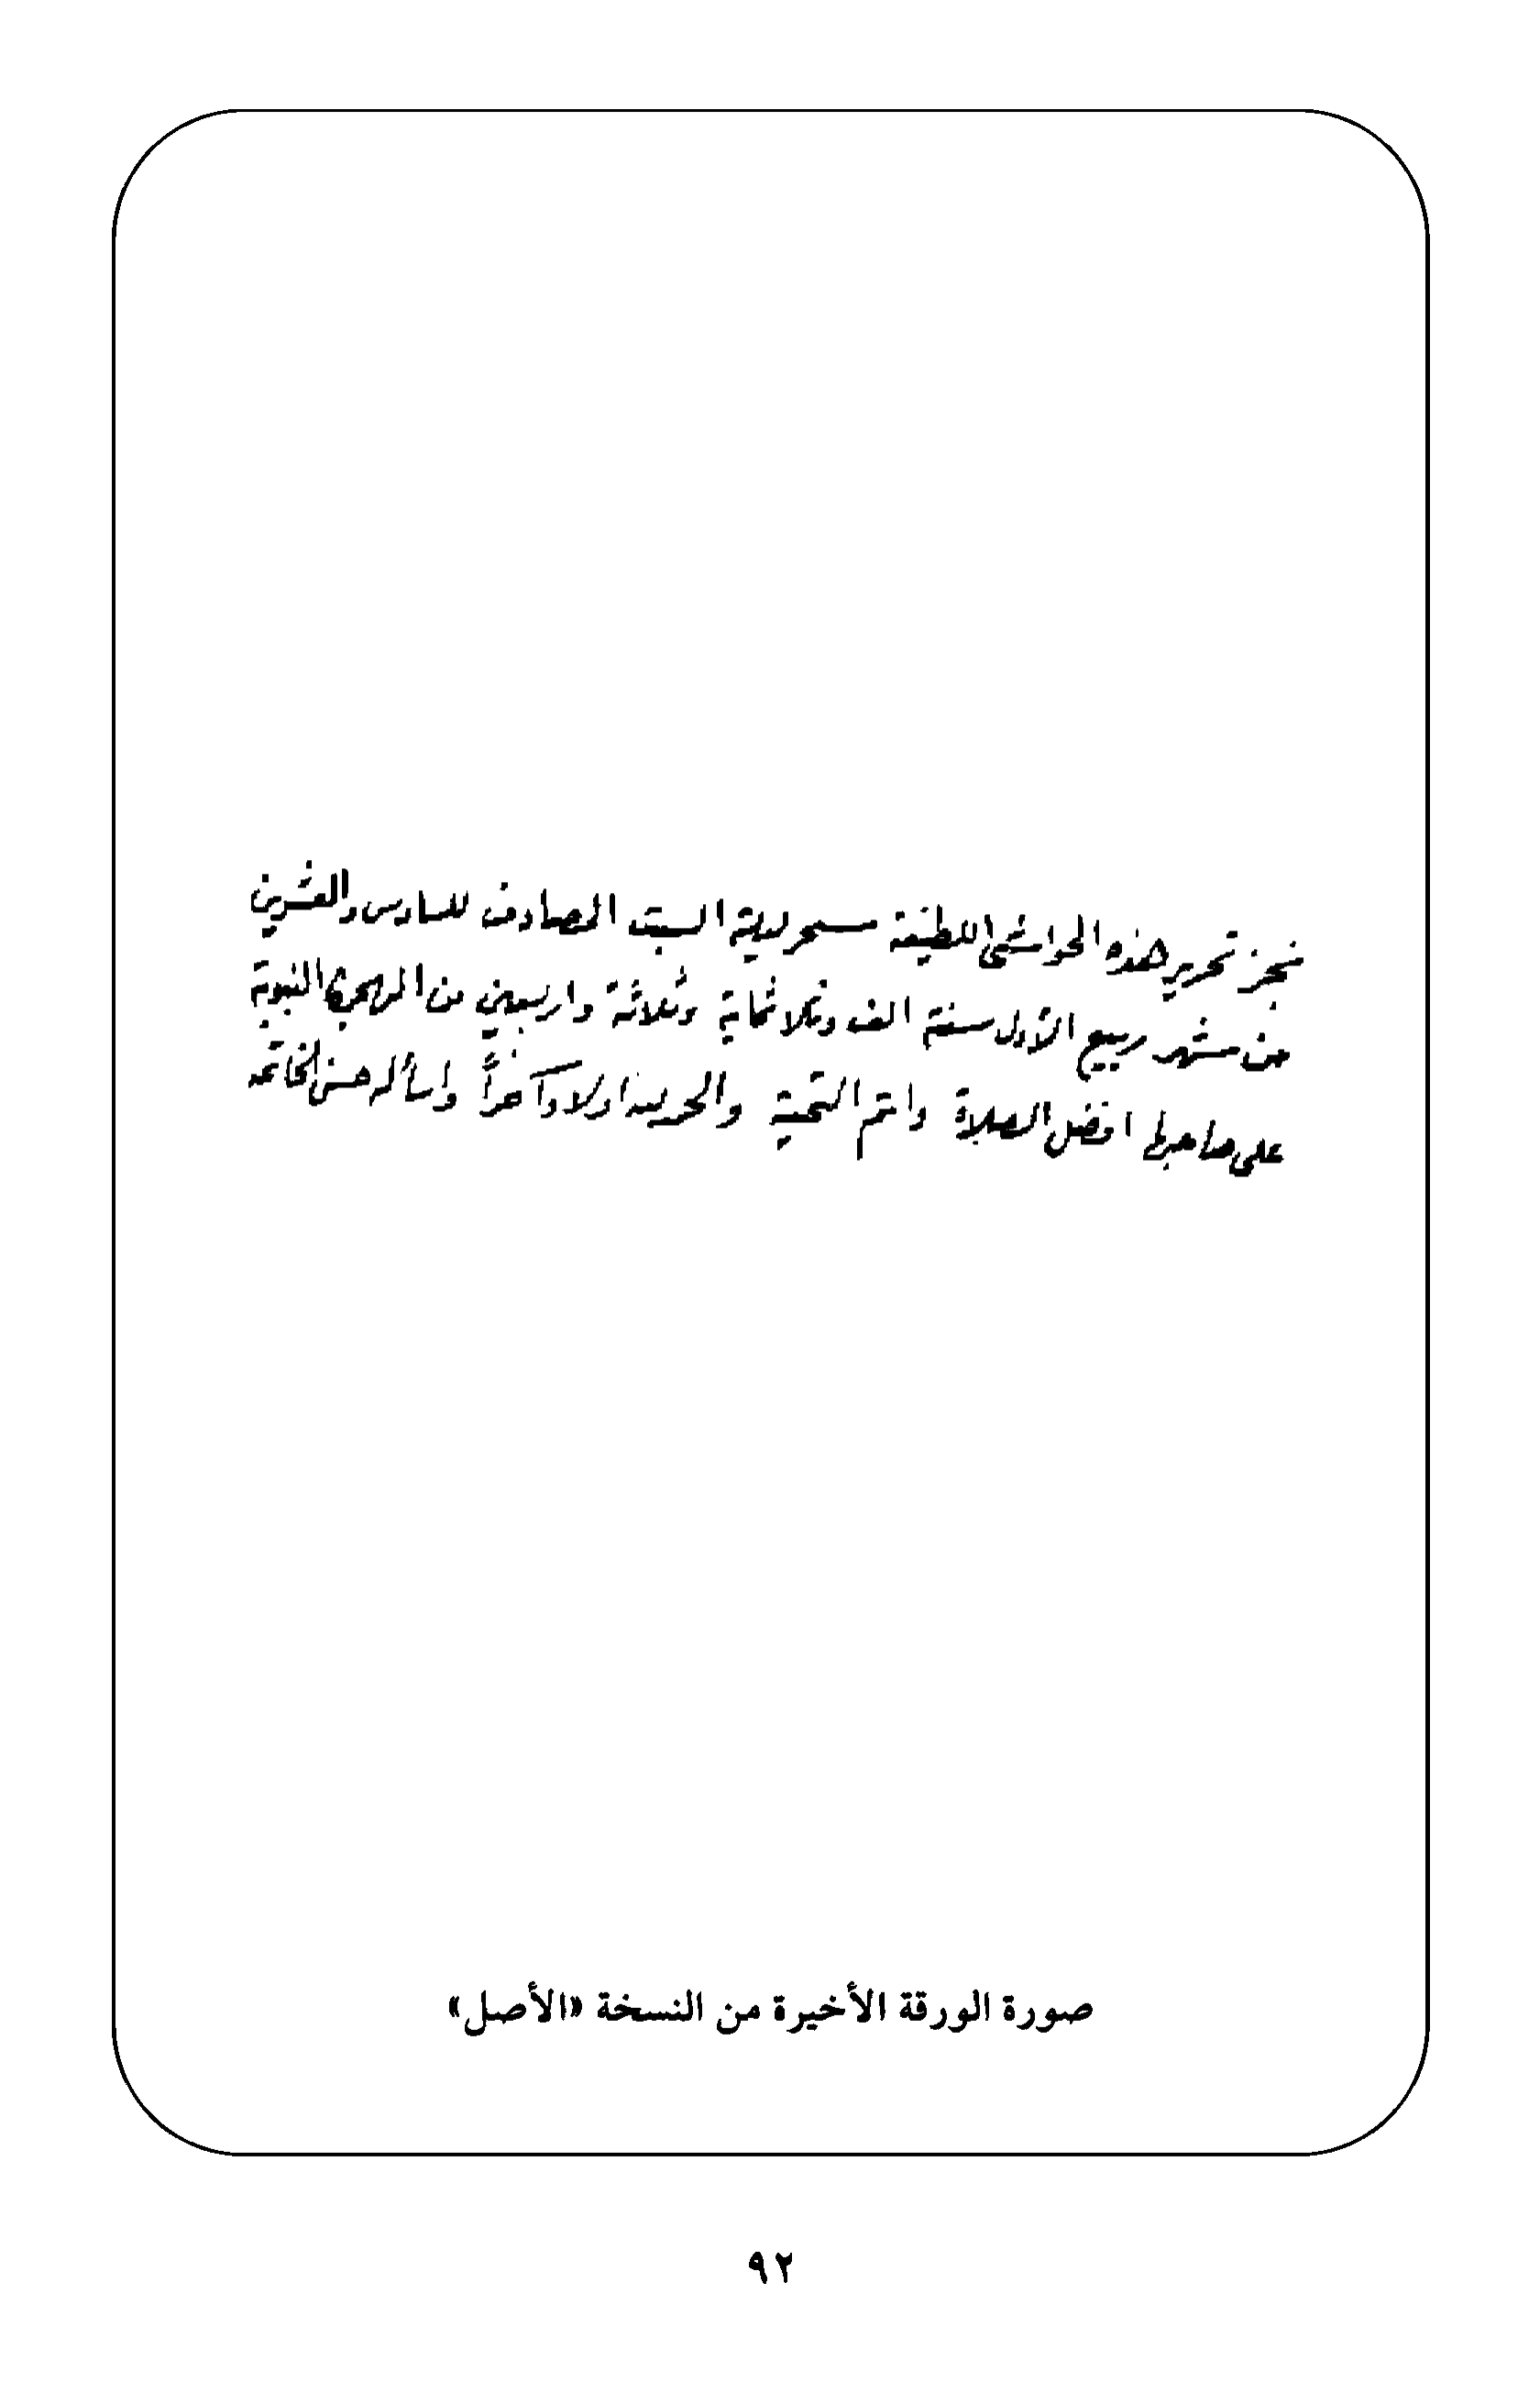 نجز تحرير هذه الحواشي اللطيفة سحر ليلة السبت المصادف للسادس والعشرين
من شهر ربيع الأول سنة الف وثلاثماية وثلاثة واربعين من الهجرة النبوية
على صاحبها افضل الصلاة واتم التحية والحمد لله اولا وآخراً واسأله حسن الخاتمه
صورة الورقة الأخيرة من النسخة «الأصل»
٩٢